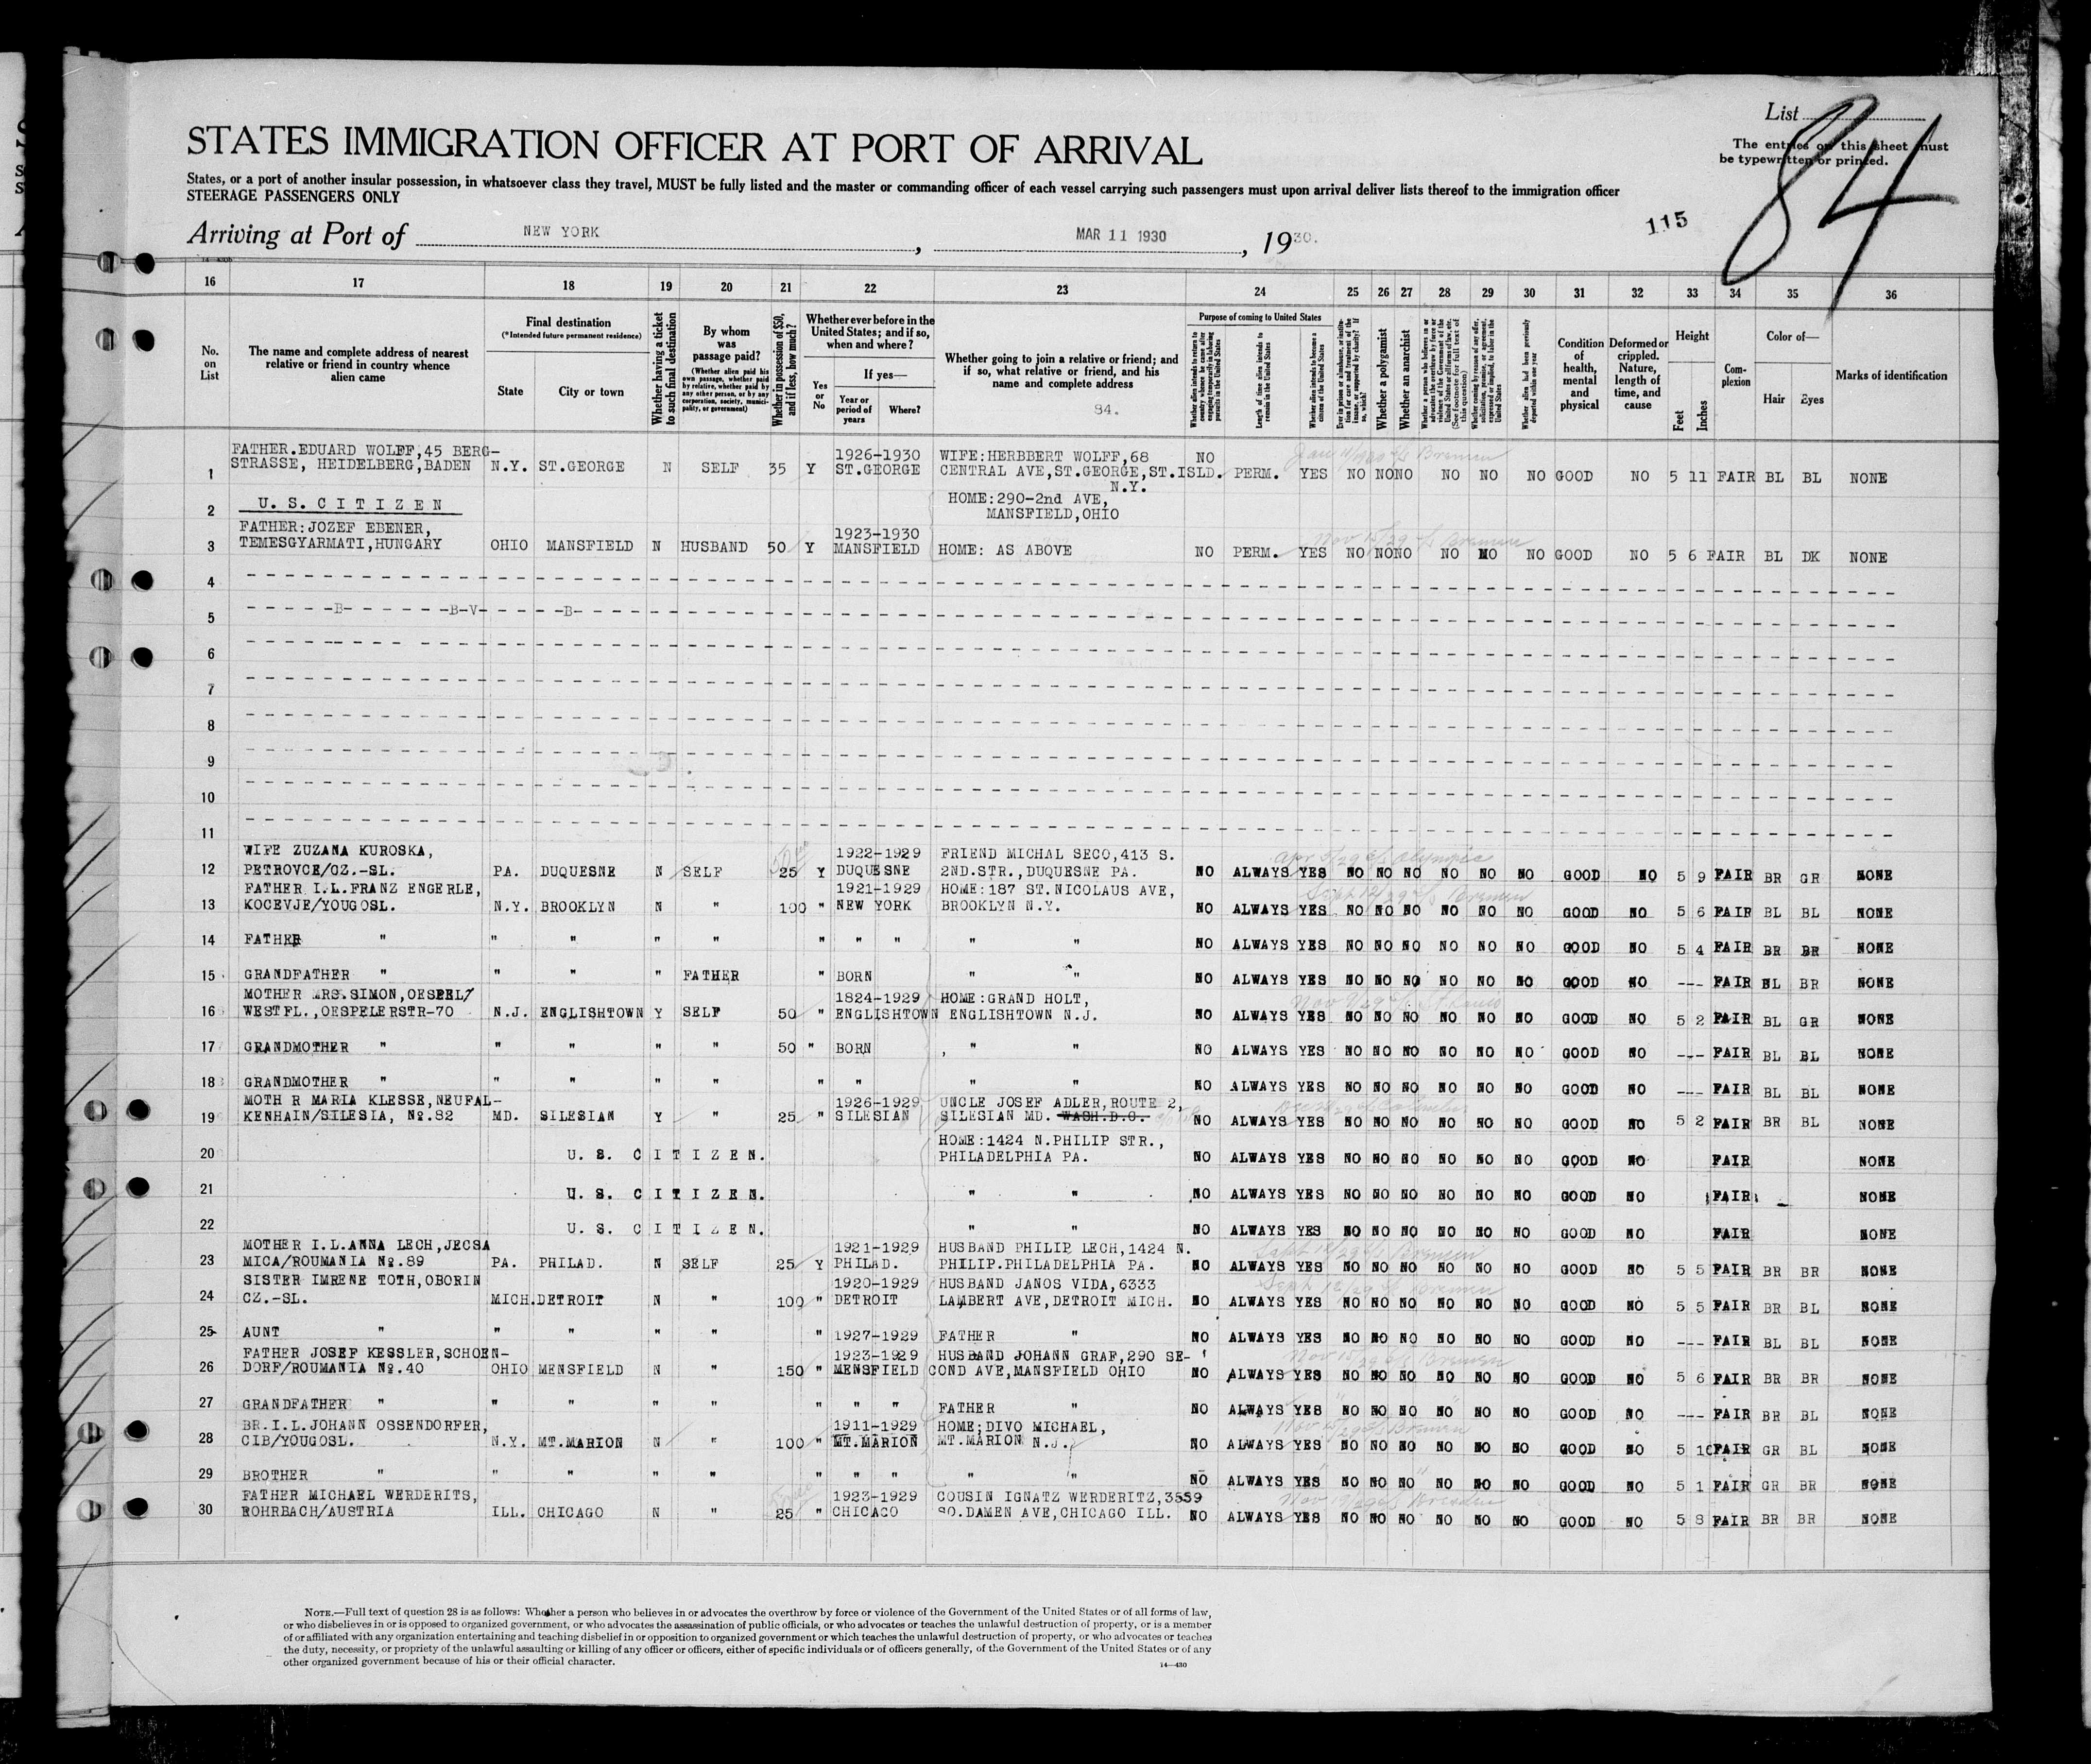 List
84
The entries on this sheet must
be typewritten or printed.
STATES IMMIGRATION OFFICER AT PORT OF ARRIVAL
States, or a port of another insular possession, in whatsoever class they travel, MUST be fully listed and the master or commanding officer of each vessel carrying such passengers must upon arrival deliver lists thereof to the immigration officer
STEERAGE PASSENGERS ONLY
115
Arriving at Port of NEW YORK , MAR 11 1930 , 1930.
16 17 18 19 20 21 22 23 24 25 26 27 28 29 30 31 32 33 34 35 36
No. on List
The name and complete address of nearest
relative or friend in country whence
alien came
Final destination
(*Intended future permanent residence)
State
City or town
Whether having a ticket
to such final destination
By whom
was
passage paid?
(Whether alien paid his
own passage, whether paid
by relative, whether paid by
any other person, or by any
corporation, society, munici-
pality, or government)
Whether in possession of $50,
and if less, how much?
Whether ever before in the
United States; and if so,
when and where?
Yes
or
No
If yes—
Year or
period of
years
Where?
Whether going to join a relative or friend; and
if so, what relative or friend, and his
name and complete address
84.
Purpose of coming to United States
Length of time alien intends to
remain in the United States
Whether alien intends to become a
citizen of the United States
Whether a polygamist
Whether an anarchist
Condition
of
health,
mental
and
physical
Deformed or
crippled.
Nature,
length of
time, and
cause
Height
Feet
Inches
Com-
plexion
Color of—
Hair
Eyes
Marks of identification
FATHER.EDUARD WOLFF,45 BERG- 1926-1930 WIFE:HERBBERT WOLFF,68 NO
1 STRASSE, HEIDELBERG,BADEN N.Y. ST.GEORGE N SELF 35 Y ST.GEORGE CENTRAL AVE,ST.GEORGE,ST.ISLD. PERM. YES NO NO NO NO NO NO GOOD NO 5 11 FAIR BL BL NONE
N.Y.
2 U.S.CITIZEN HOME:290-2nd AVE,
MANSFIELD,OHIO
FATHER:JOZEF EBENER, 1923-1930
3 TEMESGYARMATI,HUNGARY OHIO MANSFIELD N HUSBAND 50 Y MANSFIELD HOME: AS ABOVE NO PERM. YES NO NO NO NO NO NO GOOD NO 5 6 FAIR BL DK NONE
4
5 -B- -B-V- -B-
6
7
8
9
10
11
WIFE ZUZANA KUROSKA, 1922-1929 FRIEND MICHAL SECO,413 S. Apr 3/29 s/s Olympic
12 PETROVCE/CZ.-SL. PA. DUQUESNE N SELF 25 Y DUQUESNE 2ND.STR.,DUQUESNE PA. NO ALWAYS YES NO NO NO NO NO NO GOOD NO 5 9 FAIR BR GR NONE
FATHER I.L.FRANZ ENGERLE, 1921-1929 HOME:187 ST.NICOLAUS AVE, Sept 12/29 s/s Bremen
13 KOCEVJE/YOUGOSL. N.Y. BROOKLYN N " 100 " NEW YORK BROOKLYN N.Y. NO ALWAYS YES NO NO NO NO NO NO GOOD NO 5 6 FAIR BL BL NONE
14 FATHER " " " " " " " " " " NO ALWAYS YES NO NO NO NO NO NO GOOD NO 5 4 FAIR BR BR NONE
15 GRANDFATHER " " " " FATHER " BORN " " NO ALWAYS YES NO NO NO NO NO NO GOOD NO --- FAIR BL BR NONE
MOTHER MRS.SIMON,OESPEL/ 1824-1929 HOME:GRAND HOLT,
16 WESTFL.,OESPELERSTR-70 N.J. ENGLISHTOWN Y SELF 50 " ENGLISHTOWN ENGLISHTOWN N.J. NO ALWAYS YES NO NO NO NO NO NO GOOD NO 5 2 FAIR BL GR NONE
17 GRANDMOTHER " " " " " 50 " BORN , " " NO ALWAYS YES NO NO NO NO NO NO GOOD NO --- FAIR BL BL NONE
18 GRANDMOTHER " " " " " " " " " NO ALWAYS YES NO NO NO NO NO NO GOOD NO --- FAIR BL BL NONE
MOTH R MARIA KLESSE,NEUFAL- 1926-1929 UNCLE JOSEF ADLER,ROUTE 2,
19 KENHAIN/SILESIA, No.82 MD. SILESIAN Y " 25 " SILESIAN SILESIAN MD. WASH.D.C. NO ALWAYS YES NO NO NO NO NO NO GOOD NO 5 2 FAIR BR BL NONE
HOME:1424 N.PHILIP STR.,
20 U. S. C I T I Z E N. PHILADELPHIA PA. NO ALWAYS YES NO NO NO NO NO NO GOOD NO FAIR NONE
21 U. S. C I T I Z E N. " " NO ALWAYS YES NO NO NO NO NO NO GOOD NO FAIR NONE
22 U. S. C I T I Z E N. " " NO ALWAYS YES NO NO NO NO NO NO GOOD NO FAIR NONE
MOTHER I.L.ANNA LECH,JECSA 1921-1929 HUSBAND PHILIP LECH,1424 N. Sept 12/29 s/s Bremen
23 MICA/ROUMANIA No.89 PA. PHILAD. N SELF 25 Y PHILAD. PHILIP.PHILADELPHIA PA. NO ALWAYS YES NO NO NO NO NO NO GOOD NO 5 5 FAIR BR BR NONE
SISTER IMRENE TOTH,OBORIN 1920-1929 HUSBAND JANOS VIDA,6333 Sept 12/29 s/s Bremen
24 CZ.-SL. MICH.DETROIT N " 100 " DETROIT LAMBERT AVE,DETROIT MICH. NO ALWAYS YES NO NO NO NO NO NO GOOD NO 5 5 FAIR BR BL NONE
25 AUNT " " " " " " 1927-1929 FATHER " NO ALWAYS YES NO NO NO NO NO NO GOOD NO --- FAIR BL BL NONE
FATHER JOSEF KESSLER,SCHOEN- 1923-1929 HUSBAND JOHANN GRAF,290 SE- Nov 15/29 s/s Bremen
26 DORF/ROUMANIA No.40 OHIO MENSFIELD N " 150 " MENSFIELD COND AVE,MANSFIELD OHIO NO ALWAYS YES NO NO NO NO NO NO GOOD NO 5 6 FAIR BR BR NONE
27 GRANDFATHER " " " " " " " " FATHER " NO ALWAYS YES NO NO NO NO NO NO GOOD NO --- FAIR BR BL NONE
BR.I.L.JOHANN OSSENDORFER, 1911-1929 HOME;DIVO MICHAEL,
28 CIB/YOUGOSL. N.Y. MT.MARION N " 100 " MT.MARION MT.MARION N.J. NO ALWAYS YES NO NO NO NO NO NO GOOD NO 5 10 FAIR GR BL NONE
29 BROTHER " " " " " " " " " " NO ALWAYS YES NO NO NO NO NO NO GOOD NO 5 1 FAIR GR BR NONE
FATHER MICHAEL WERDERITS, 1923-1929 COUSIN IGNATZ WERDERITZ,3559
30 ROHRBACH/AUSTRIA ILL. CHICAGO N " 25 " CHICAGO SO.DAMEN AVE,CHICAGO ILL. NO ALWAYS YES NO NO NO NO NO NO GOOD NO 5 8 FAIR BR BR NONE
NOTE.—Full text of question 28 is as follows: Whether a person who believes in or advocates the overthrow by force or violence of the Government of the United States or of all forms of law,
or who disbelieves in or is opposed to organized government, or who advocates the assassination of public officials, or who advocates or teaches the unlawful destruction of property, or is a member
of or affiliated with any organization entertaining and teaching disbelief in or opposition to organized government or which teaches the unlawful destruction of property, or who advocates or teaches
the duty, necessity, or propriety of the unlawful assaulting or killing of any officer or officers, either of specific individuals or of officers generally, of the Government of the United States or of any
other organized government because of his or their official character.
14—430